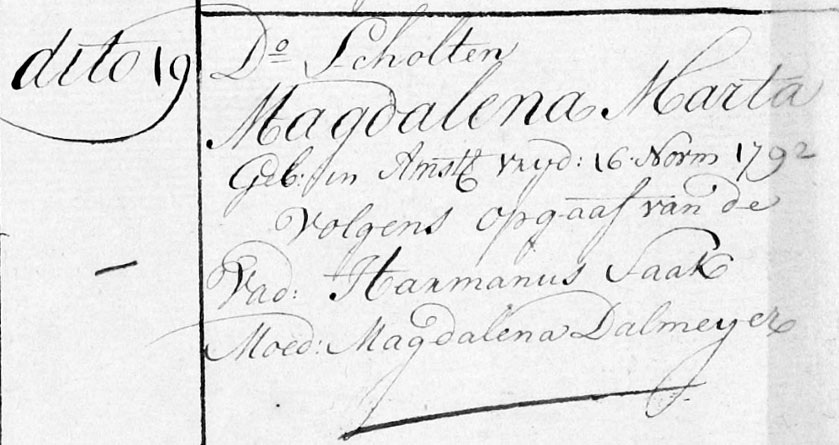 dito 19
Do Scholten
Magdalena Marta
Geb: in Amstt vryd: 16 Novm 1792
Volgens opgaaf van de
Vad: Harmanus Saak
Moed: Magdalena Dalmeyer